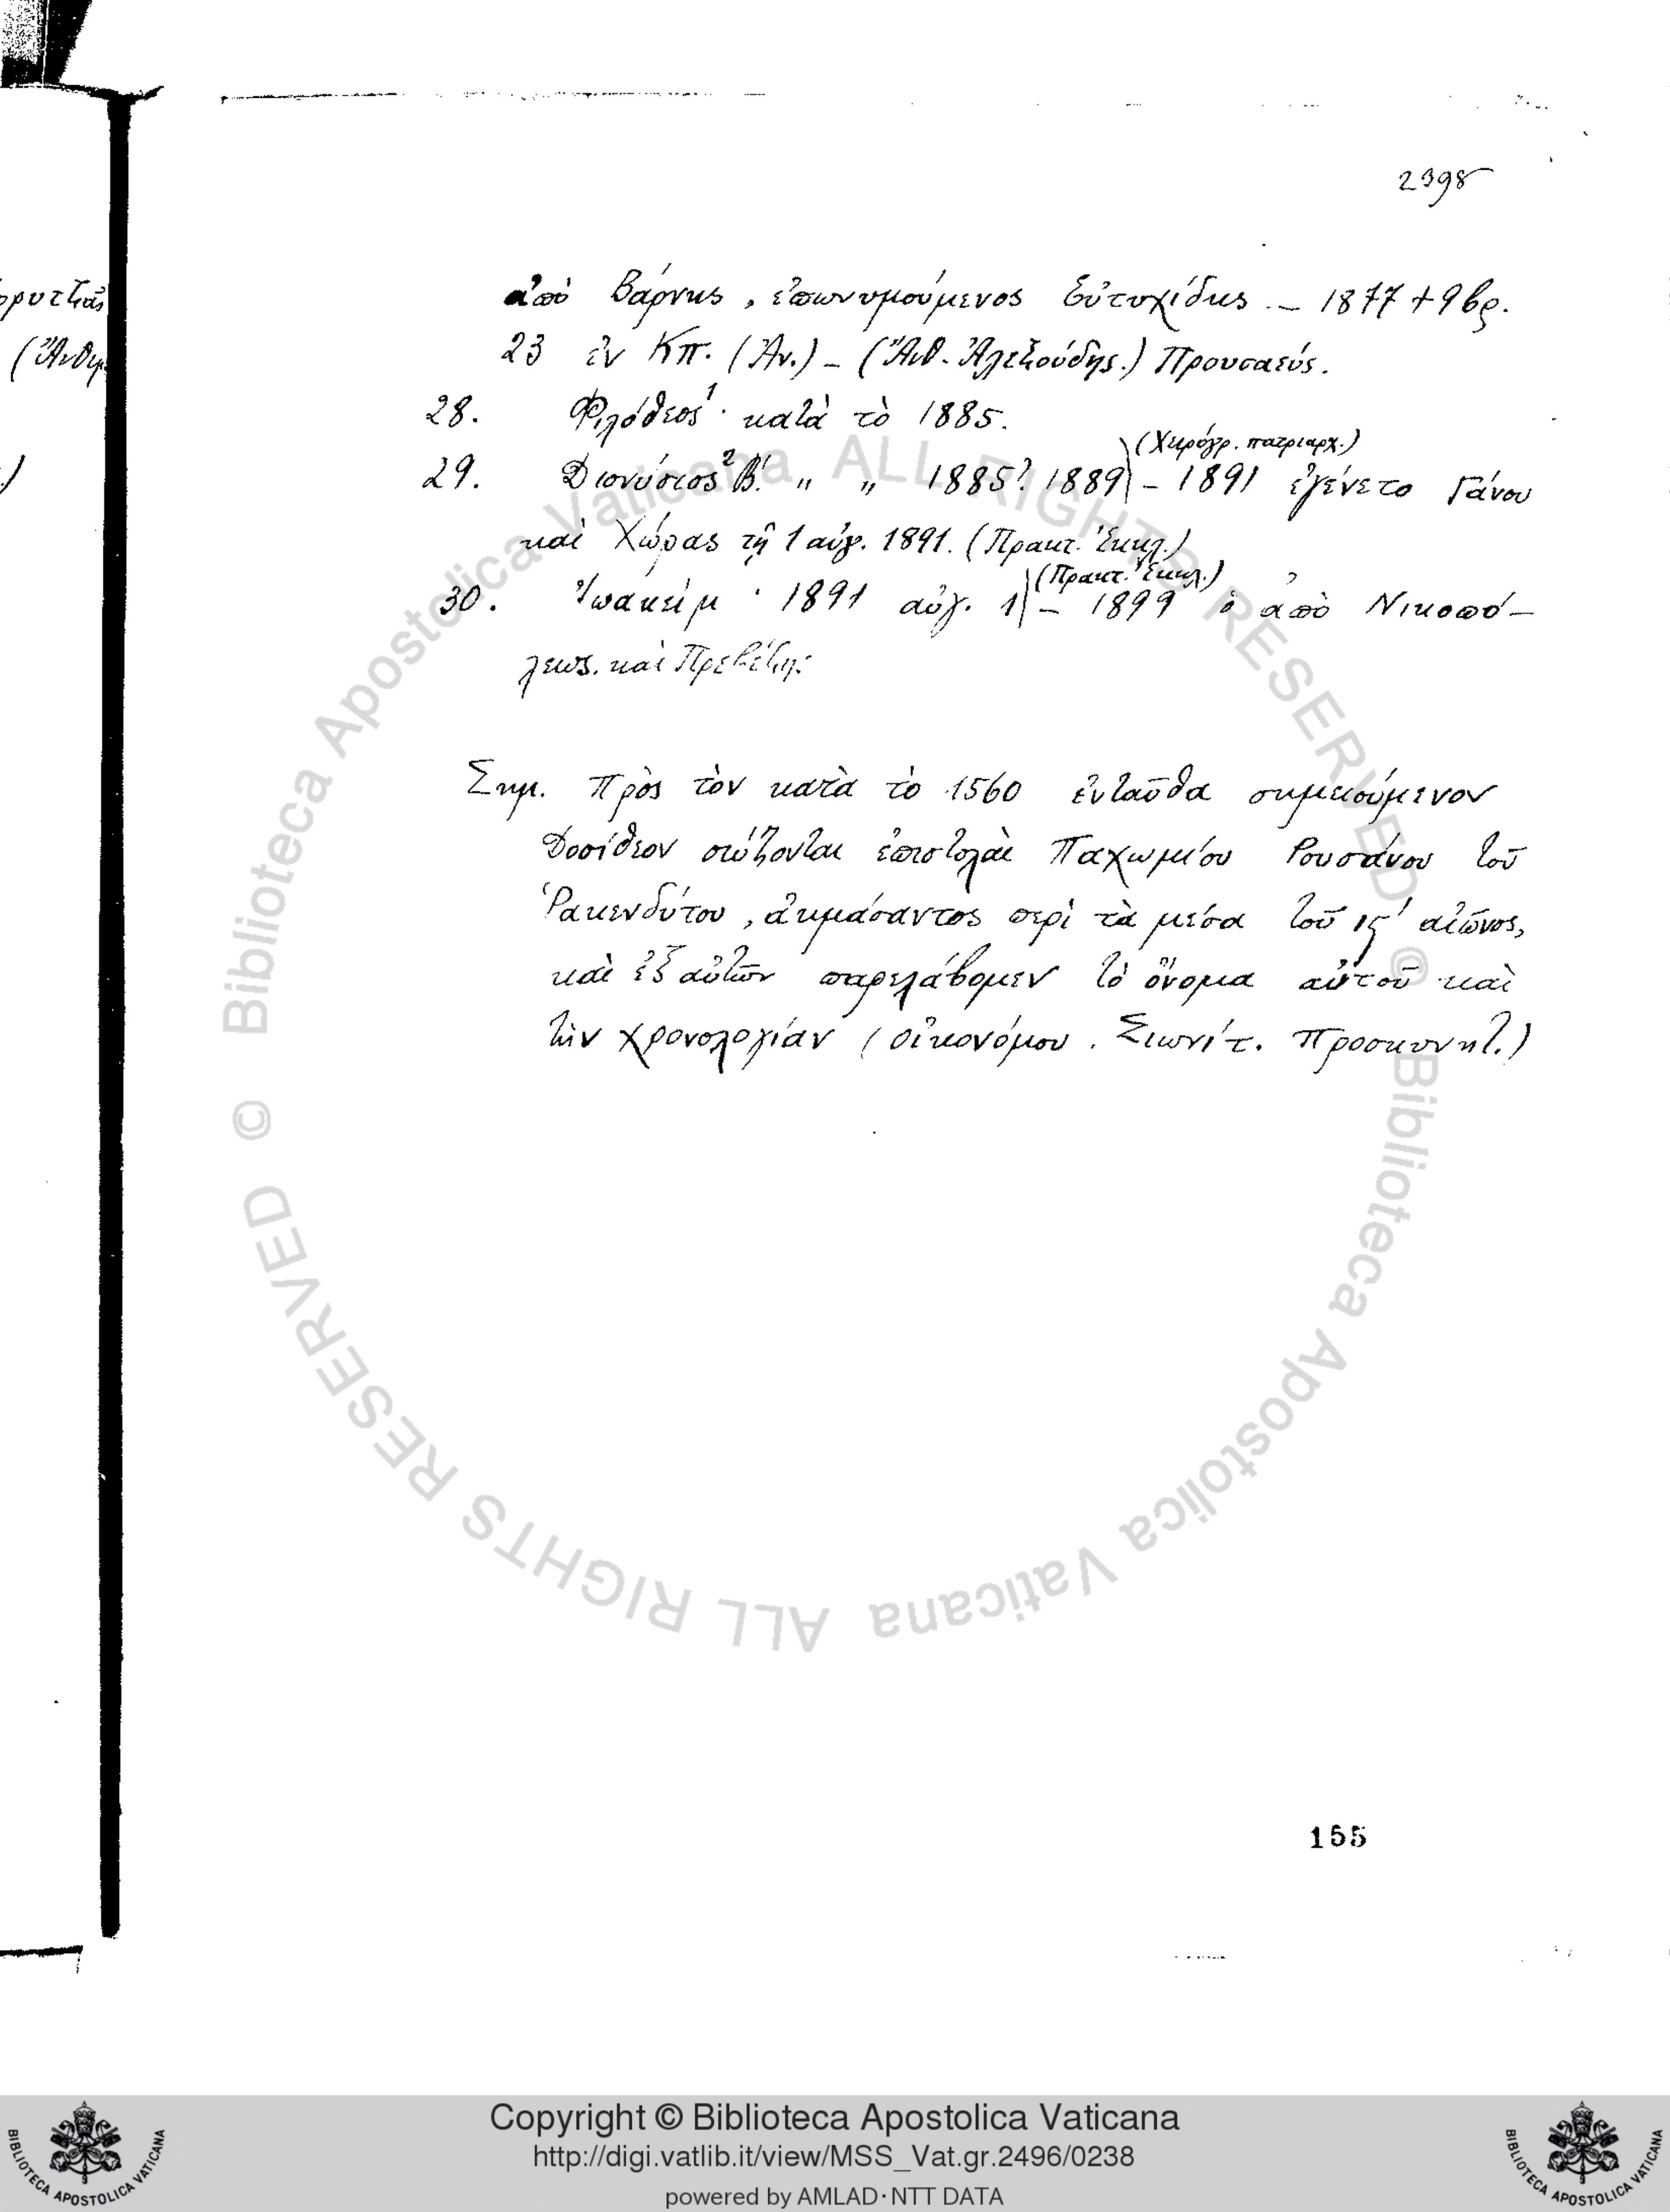 2398
ἀπὸ Βάρνης, ἐπωνυμούμενος Εὐτυχίδης. – 1877 + 9βρ.
23 ἐν Κπ. (Ἀν.) – (Ἄνθ. Ἀλεξούδης.) Προυσαεύς.
28. Φιλόθεος¹· κατὰ τὸ 1885.
(Χειρόγρ. πατριαρχ.)
29. Διονύσιος² Β΄. „ „ 1885? 1889 – 1891 ἐγένετο Γάνου
καὶ Χώρας τῇ 1 αὐγ. 1891. (Πρακτ. Ἐκκλ.)
(Πρακτ. Ἐκκλ.)
30. Ἰωακείμ · 1891 αὐγ. 1 – 1899 ὁ ἀπὸ Νικοπό–
λεως. καὶ Πρεβέζης
Σημ. Πρὸς τὸν κατὰ τὸ 1560 ἐνταῦθα σημειούμενον
Δοσίθεον σώζονται ἐπιστολαὶ Παχωμίου Ρουσάνου τοῦ
Ῥακενδύτου, ἀκμάσαντος περὶ τὰ μέσα τοῦ ις΄ αἰῶνος,
καὶ ἐξ αὐτῶν παρελάβομεν τὸ ὄνομα αὐτοῦ καὶ
τὴν χρονολογίαν (Οἰκονόμου. Σιωνίτ. Προσκυνητ.)
155
ρυτιᾶς
(Ἄνθιμ
)
© Biblioteca Apostolica Vaticana ALL RIGHTS RESERVED
© Biblioteca Apostolica Vaticana ALL RIGHTS RESERVED
Copyright © Biblioteca Apostolica Vaticana
http://digi.vatlib.it/view/MSS_Vat.gr.2496/0238
powered by AMLAD·NTT DATA
BIBLIOTECA APOSTOLICA VATICANA
BIBLIOTECA APOSTOLICA VATICANA